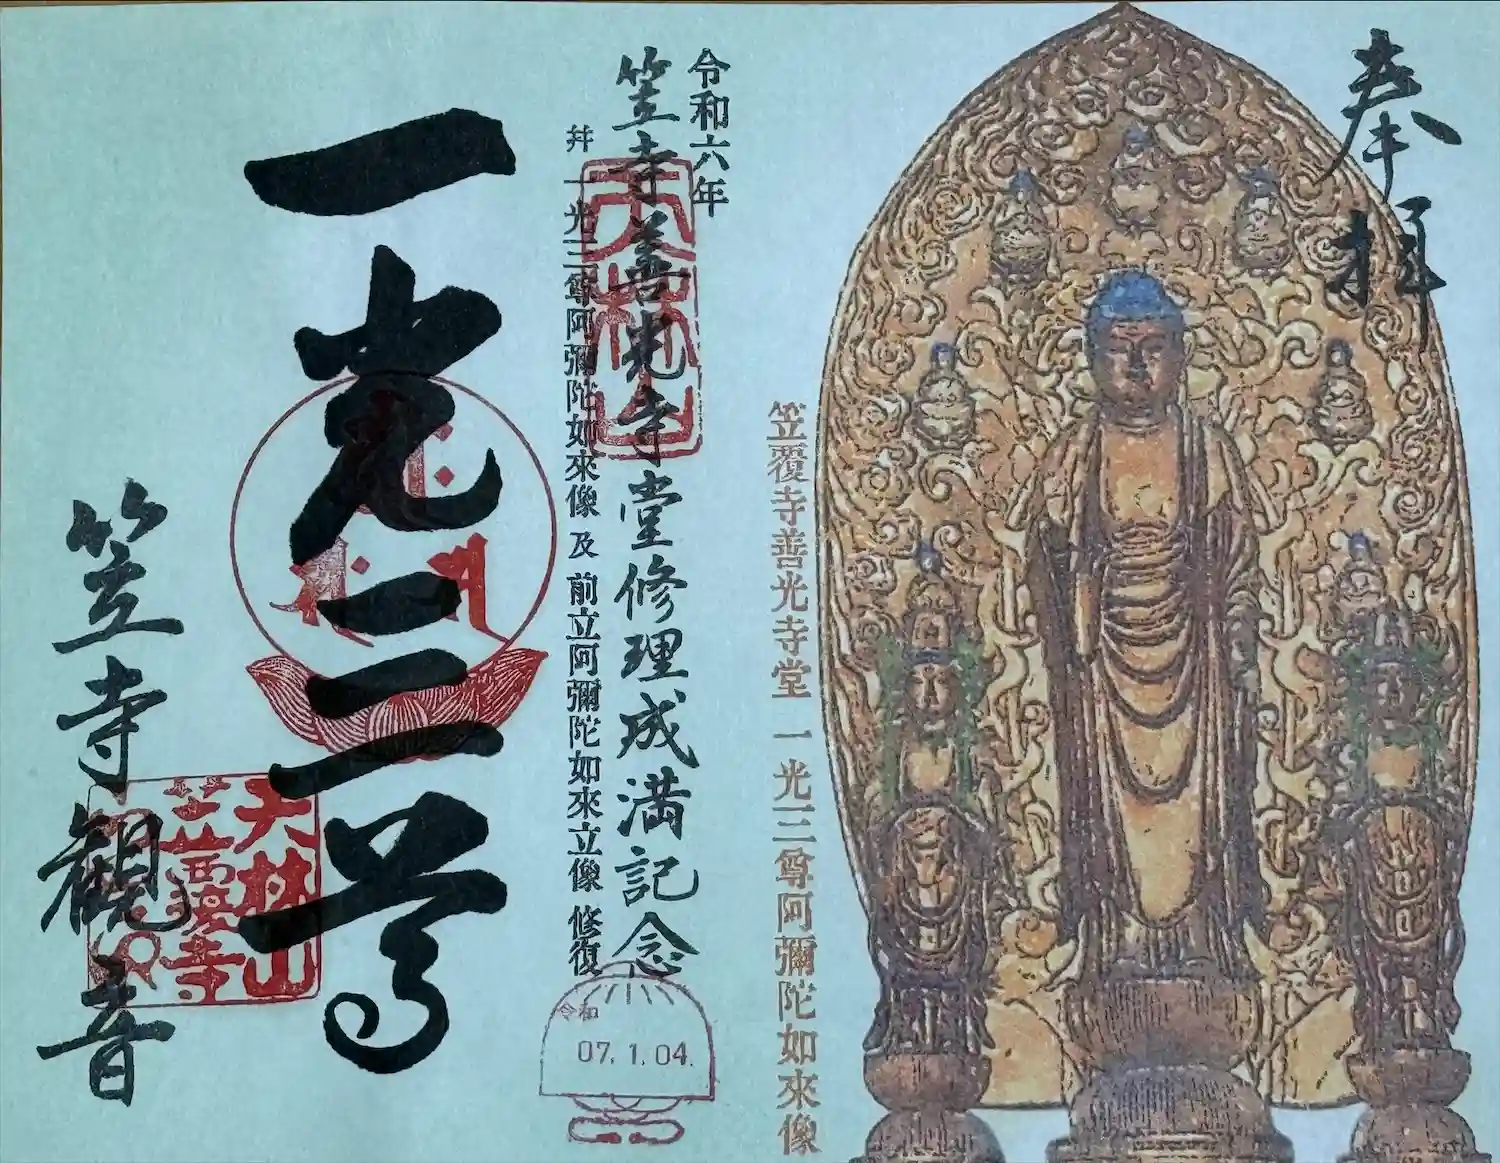 奉拝
笠覆寺善光寺堂 一光三尊阿彌陀如來像
令和六年
笠寺善光寺堂修理成満記念
幷 一光三尊阿彌陀如來像 及 前立阿彌陀如來立像 修復
天林山
令和
07. 1. 04.
一光三尊
笠寺観音
天林山
笠覆寺